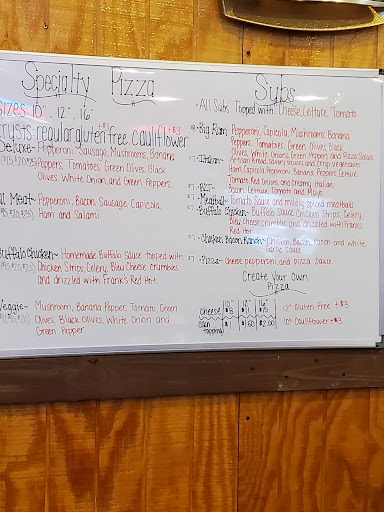 Specialty Pizza
sizes 10" 12" 16"
crusts regular gluten free +$3 cauliflower +$3
Deluxe~ Pepperoni, Sausage, Mushrooms, Banana
Peppers, Tomatoes, Green Olives, Black
Olives, White Onion, and Green Peppers.
All Meat~ Pepperoni, Bacon, Sausage, Capicola,
Ham and Salami
Buffalo Chicken~ Homemade Buffalo Sauce topped with
Chicken Strips, Celery, Bleu Cheese crumbles
and drizzled with Frank's Red Hot
Veggie~ Mushroom, Banana Pepper, Tomato, Green
Olives, Black Olives, White Onion and
Green Pepper
Subs
• All Subs Topped with Cheese, Lettuce, Tomato
Pepperoni, Capicola, Mushrooms, Banana
Peppers, Tomatoes, Green Olives, Black
Olives, White Onions, Green Peppers, and Pizza Sauce
Italian~ Artisan Bread, Savory Onions, and Crisp Vegetables
Ham, Capicola, Pepperoni, Banana Peppers, Lettuce,
Tomato, Red Onions and Creamy Italian
BLT~ Bacon, Lettuce, Tomato and Mayo
Meatball~ Tomato Sauce and mildly spiced meatballs
Buffalo Chicken~ Buffalo Sauce, Chicken Strips, Celery,
Bleu cheese crumbles and drizzled with Frank's
Red Hot
Chicken Bacon Ranch~ Chicken, Bacon, Ranch and White
Garlic Sauce
Pizza~ Cheese, pepperoni, and pizza sauce
Create Your Own
Pizza
10" 12" 16"
Cheese $8 $11
Each topping $1 $1.50 $2.00
12" Gluten Free +$3
10" Cauliflower +$3